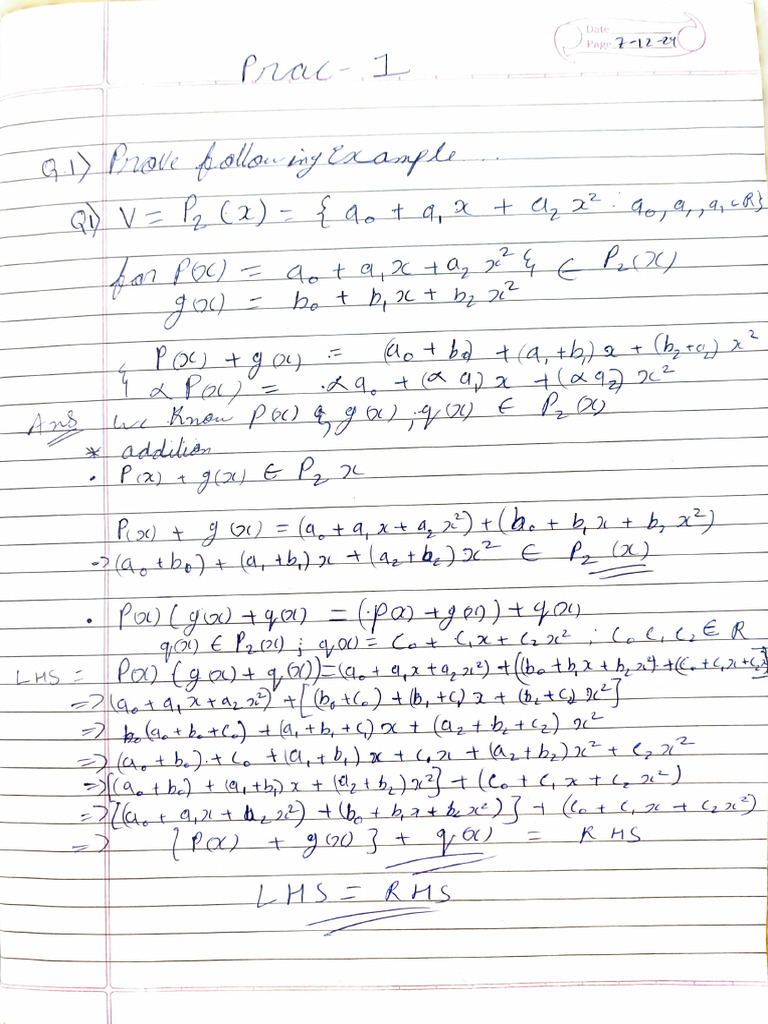 Date
Page 7-12-24
Prac-1
Q.1) Prove following Example...
Q1) V = P₂(x) = { a₀ + a₁x + a₂x² : a₀, a₁, a₁ ∈ R}
for P(x) = a₀ + a₁x + a₂x² & ∈ P₂(x)
g(x) = b₀ + b₁x + b₂x²
& P(x) + g(x) = (a₀ + b₀) + (a₁+b₁)x + (b₂+a₂)x²
& αP(x) = αa₀ + (αa₁)x + (αa₂)x²
Ans we know p(x) & g(x), q(x) ∈ P₂(x)
* addition
• P(x) + g(x) ∈ P₂x
P(x) + g(x) = (a₀ + a₁x + a₂x²) + (b₀ + b₁x + b₂x²)
→ (a₀ + b₀) + (a₁ + b₁)x + (a₂ + b₂)x² ∈ P₂(x)
• P(x) (g(x) + q(x) = (p(x) + g(x)) + q(x)
q(x) ∈ P₂(x) ; q(x) = c₀ + c₁x + c₂x² ; c₀ c₁ c₂ ∈ R
LHS = P(x) (g(x) + q(x)) = (a₀ + a₁x + a₂x²) + ((b₀ + b₁x + b₂x²) + (c₀ + c₁x + c₂x²
=> (a₀ + a₁x + a₂x²) + [(b₀+c₀) + (b₁+c₁)x + (b₂+c₂)x²]
=> (a₀ + b₀ + c₀) + (a₁ + b₁ + c₁)x + (a₂ + b₂ + c₂)x²
=> (a₀ + b₀) + c₀ + (a₁ + b₁)x + c₁x + (a₂ + b₂)x² + c₂x²
=> [(a₀ + b₀) + (a₁+b₁)x + (a₂+b₂)x²] + (c₀ + c₁x + c₂x²)
=> [(a₀ + a₁x + a₂x²) + (b₀ + b₁x + b₂x²)] + (c₀ + c₁x + c₂x²)
=> [P(x) + g(x)] + q(x) = RHS
LHS = RHS